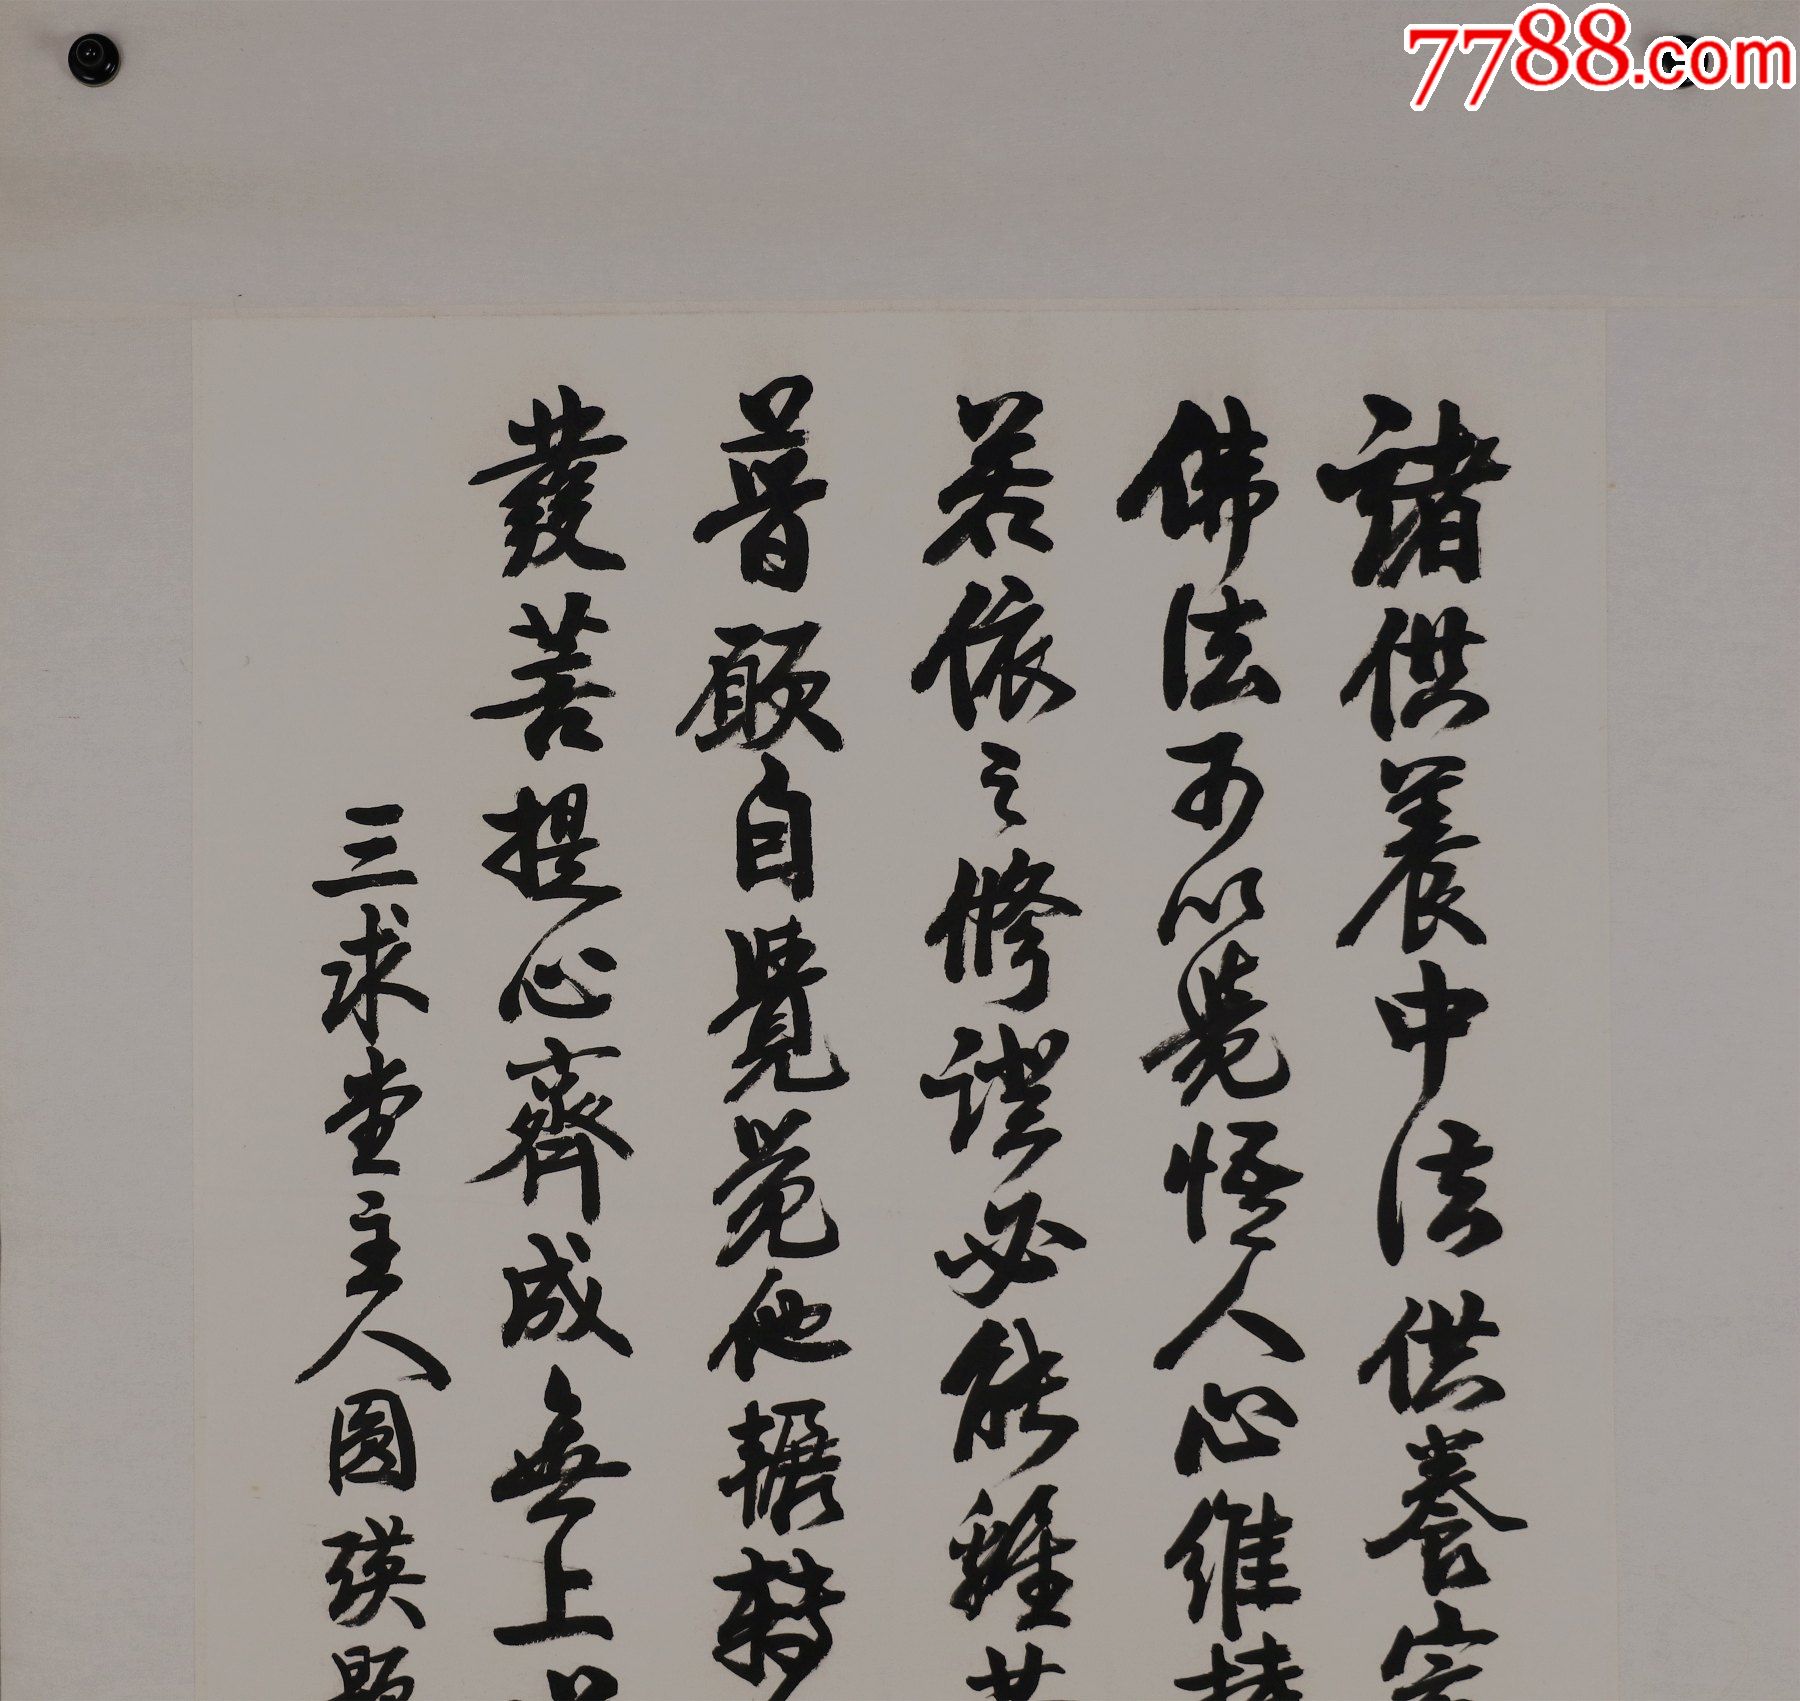 7788.com
諸供養中法供養
佛法可以覺悟人心維持
若依之修證必能離苦
普願自覺覺他輾轉
發菩提心齊成無上
三求堂主人圓瑛題